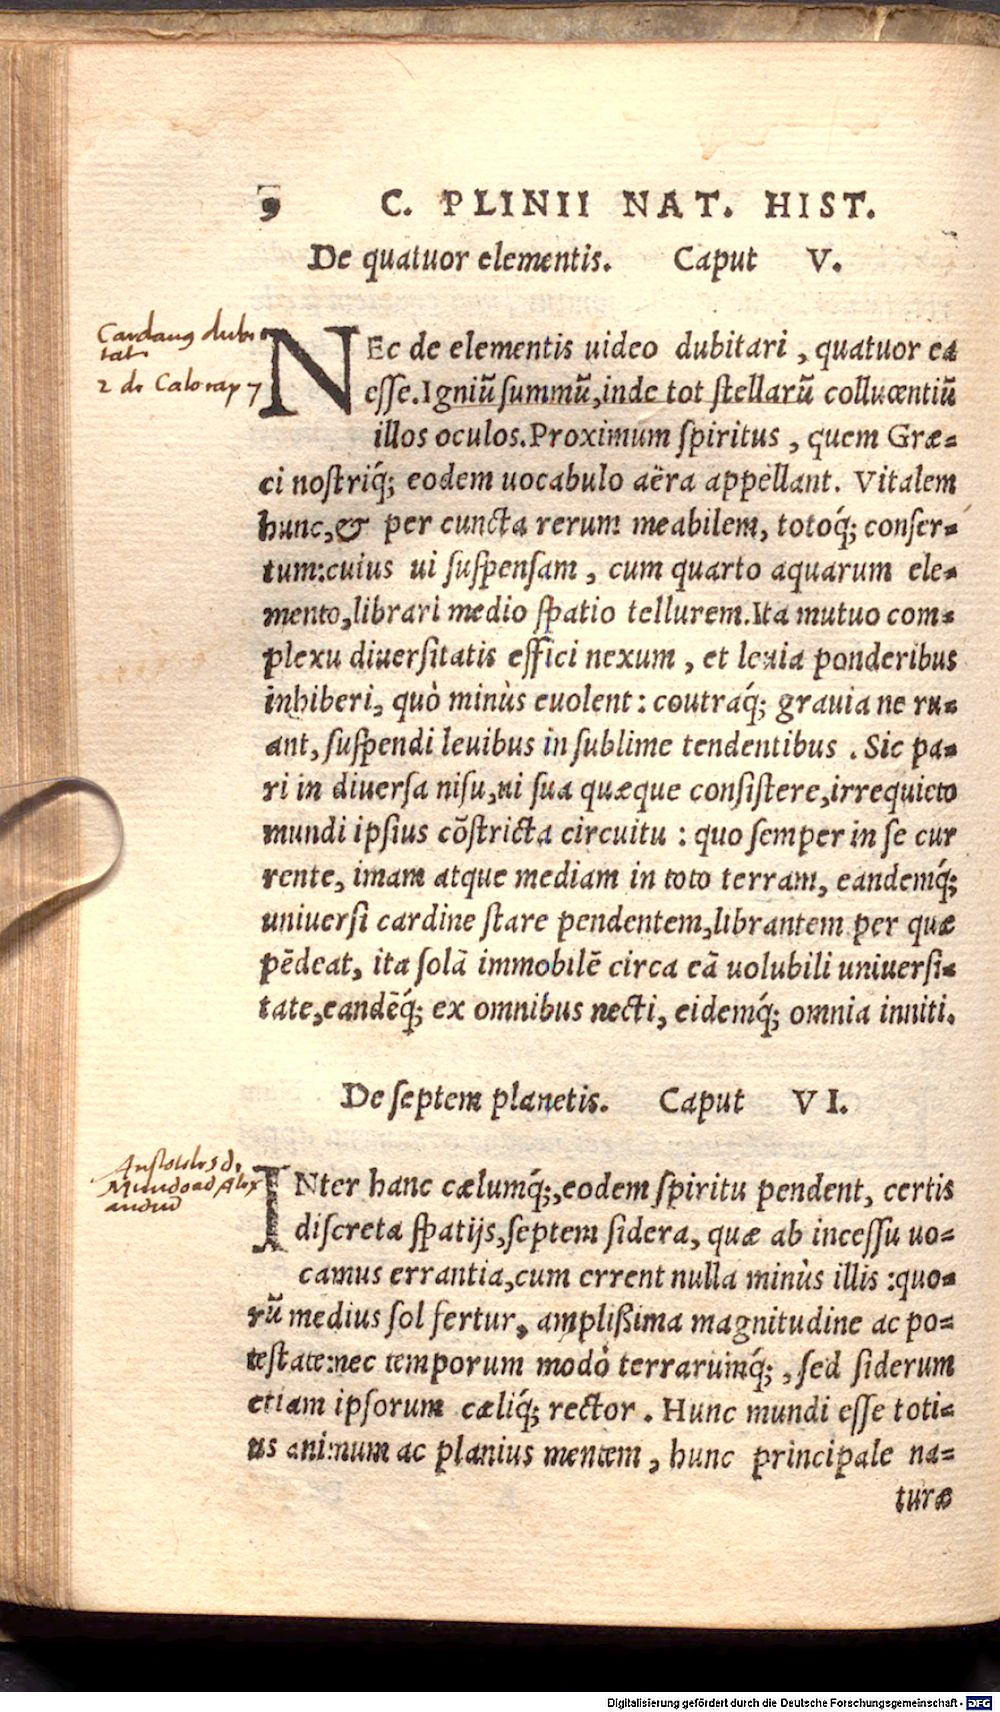 C. PLINII NAT. HIST.
De quatuor elementis. Caput V.
Cardanus dubi
tat
2 de
NEc de elementis uideo dubitari, quatuor ea
esse. Igniũ summũ, inde tot stellarũ collucentiũ
illos oculos. Proximum spiritus, quem Græ-
ci nostriq́; eodem uocabulo aëra appellant. Vitalem
hunc, & per cuncta rerum meabilem, totoq́; conser-
tum: cuius ui suspensam, cum quarto aquarum ele-
mento, librari medio spatio tellurem. Ita mutuo com-
plexu diuersitatis effici nexum, et leuia ponderibus
inhiberi, quò minùs euolent: coutraq́; grauia ne ru-
ant, suspendi leuibus in sublime tendentibus. Sic pa-
ri in diuersa nisu, ui sua quæque consistere, irrequieto
mundi ipsius cõstricta circuitu: quo semper in se cur
rente, imam atque mediam in toto terram, eandemq́;
uniuersi cardine stare pendentem, librantem per quæ
pẽdeat, ita solã immobilẽ circa eã uolubili uniuersi-
tate, eandẽq́; ex omnibus necti, eidemq́; omnia inniti.
De septem planetis. Caput VI.
Aristoteles de
Mundo ad Alex
andrũ
INter hanc cælumq́;, eodem spiritu pendent, certis
discreta spatijs, septem sidera, quæ ab incessu uo-
camus errantia, cum errent nulla minùs illis: quo-
rũ medius sol fertur, amplißima magnitudine ac po-
testate: nec temporum modò terrarumq́;, sed siderum
etiam ipsorum cæliq́; rector. Hunc mundi esse toti-
us animum ac planius mentem, hunc principale na-
turæ
Digitalisierung gefördert durch die Deutsche Forschungsgemeinschaft - DFG